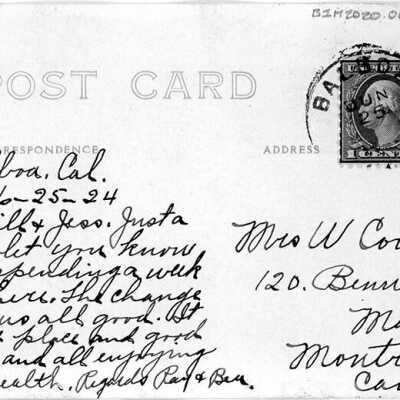 BIM2020.0
POST CARD
BALBO
JUN
25
RRESPONDENCE
ADDRESS
1 CENT
boa. Cal.
6-25-24
ill & Jess. Just a
let you know
spending a week
here. The change
us all good. It
place and good
and all enjoying
health. Regards Ray & Bea.
Mrs W Coo
120. Benn
Ma
Montr
Can